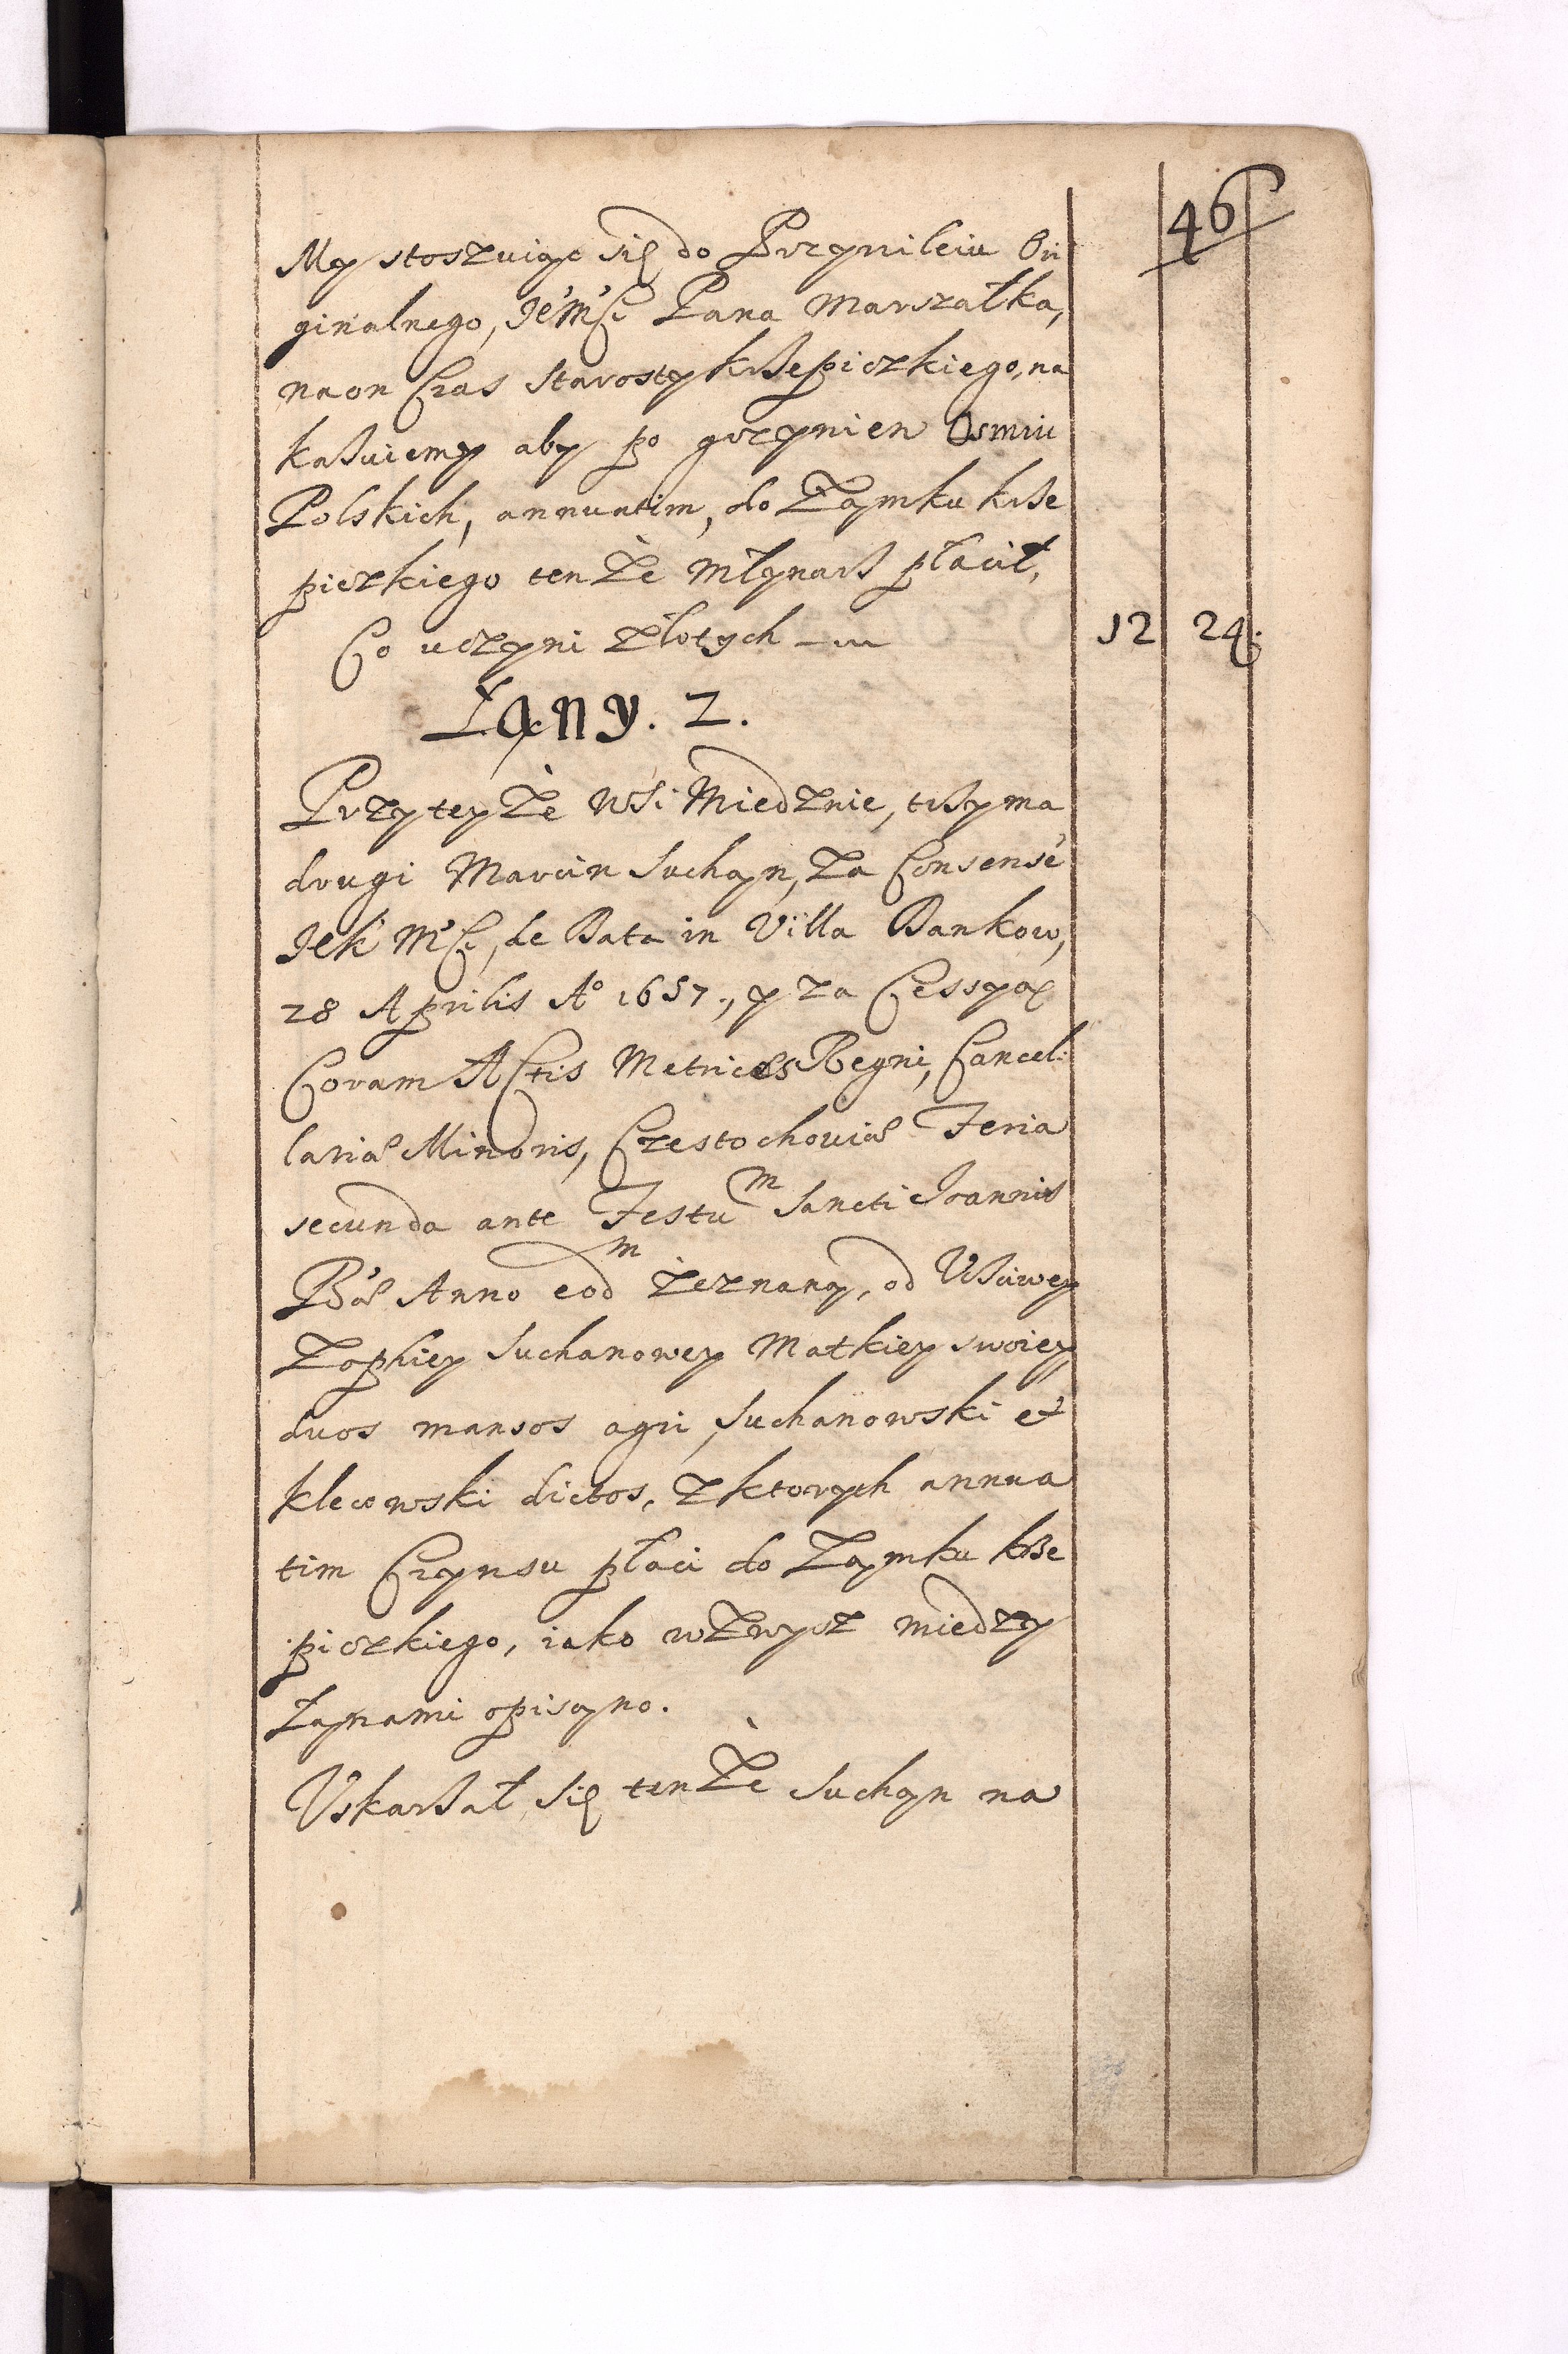 46
My stoszuiąc się do Przywileiu Ori
ginalnego, Je'm'ści Pana Marszałka,
na on Czas Starosty krzepiczkiego, na
kaßuiemy aby po grzywien Osmiu
Polskich, annuatim, do Zamku krze
piczkiego tenże Młynarß płacił,
Co uczyni złotych 12 24.
Łany. 2.
Przy teyże wsi Miedznie, trzyma
drugi Marcin Suchan, za Consensē
Jek M'ści, de Data in Villa Dankow,
28 Aprilis Aº 1657., y za Cessyą
Coram Actis Metrices Regni, Cancel:
lariæ Minoris, Czestochoviæ Feria
secunda ante Festum Sancti Joannis
B'æ Anno eodm zeznaną, od Ucciwey
Zophiey Suchanowey Matkiey swoiey
duos mansos agri, Suchanowski et
Klecowski dictos, z ktorych annua
tim Czynsu płaci do Zamku krze
piczkiego, iako wzwysz miedzy
Łanami opisano.
Uskarßał się tenże Suchan na